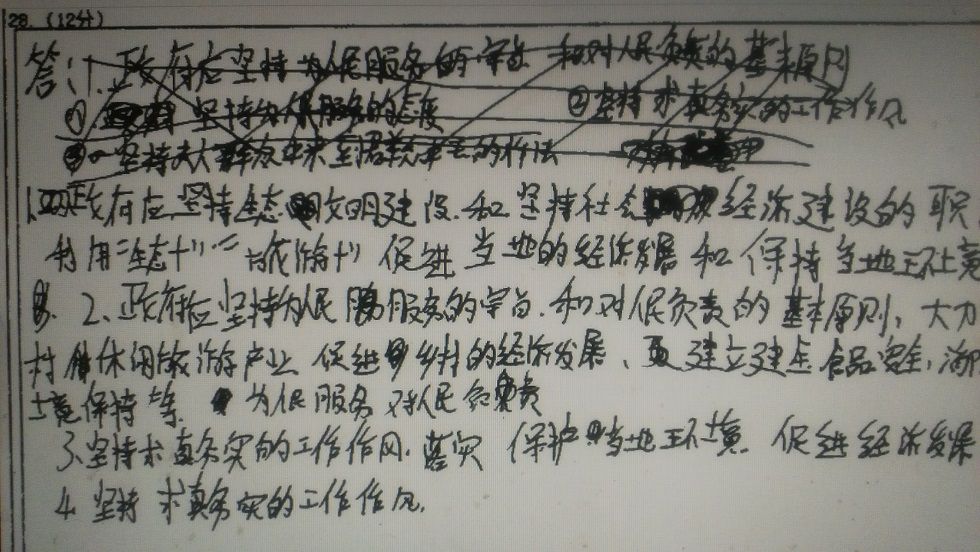 28.（12分）
答：1.政府应坚持为人民服务的宗旨 和对人民负责的基本原则
① 坚持为人民服务的态度 ②坚持求真务实的工作作风
③ 坚持从群众中来到群众中去的作法
1.政府应坚持生态文明建设.和坚持社会经济建设的职
利用"生态+""旅游+"促进当地的经济发展和保持当地环境
2、政府应坚持为人民服务的宗旨.和对人民负责的基本原则，大力
村休闲旅游产业 促进乡村的经济发展、建立建全食品安全，
境保持等. 为人民服务 对人民负责
3、坚持求真务实的工作作风.落实 保护当地环境 促进经济发展
4.坚持求真务实的工作作风.